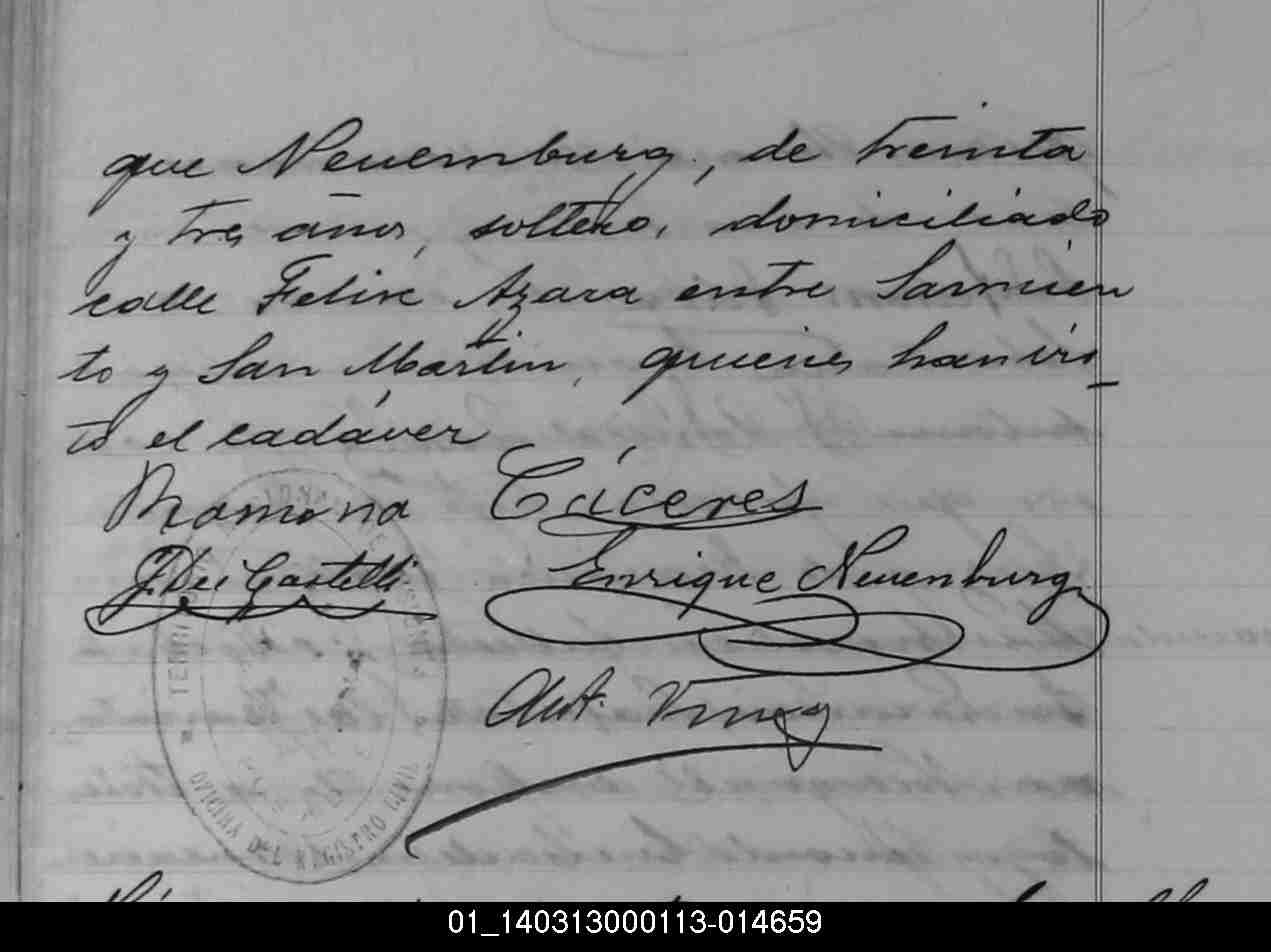 que Neuemburg, de treinta
y tres años, soltero, domiciliado
calle Felix Azara entre Sarmien
to y San Martin, quienes han vis-
to el cadáver
Ramona Cáceres
J. Dei Castelli Enrique Neuenburg
Ant.
TERRI
OFICINA DEL REGISTRO CIVIL
01_140313000113-014659